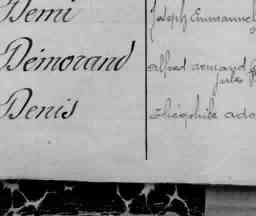 Demi Joseph Emmanuel
Démorand alfred armand
jules
Denis théophile ado